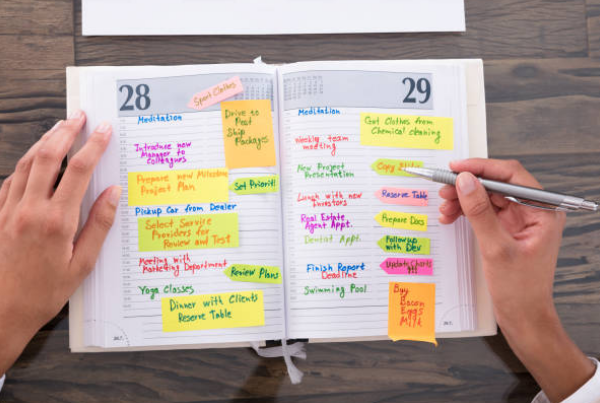 28
Sport Clothes
Meditation
Drive to
Post
Ship
Packages
Introduce new
Manager to
Colleagues
Prepare new Milestone
Project Plan
Set Priority
Pickup Car from Dealer
Select Service
Providers for
Review and Test
Meeting with
Marketing Department
Review Plans
Yoga Classes
Dinner with Clients
Reserve Table
29
Meditation
Get Clothes from
Chemical cleaning
Weekly team
meeting
New Project
Presentation
Copy
Lunch with new
Investors
Reserve Table
Real Estate
Agent Appt.
Prepare Docs
Dentist Appt.
Followup
with Dev
Finish Report
Deadline
Update Charts
Swimming Pool
Buy
Bacon
Eggs
Milk